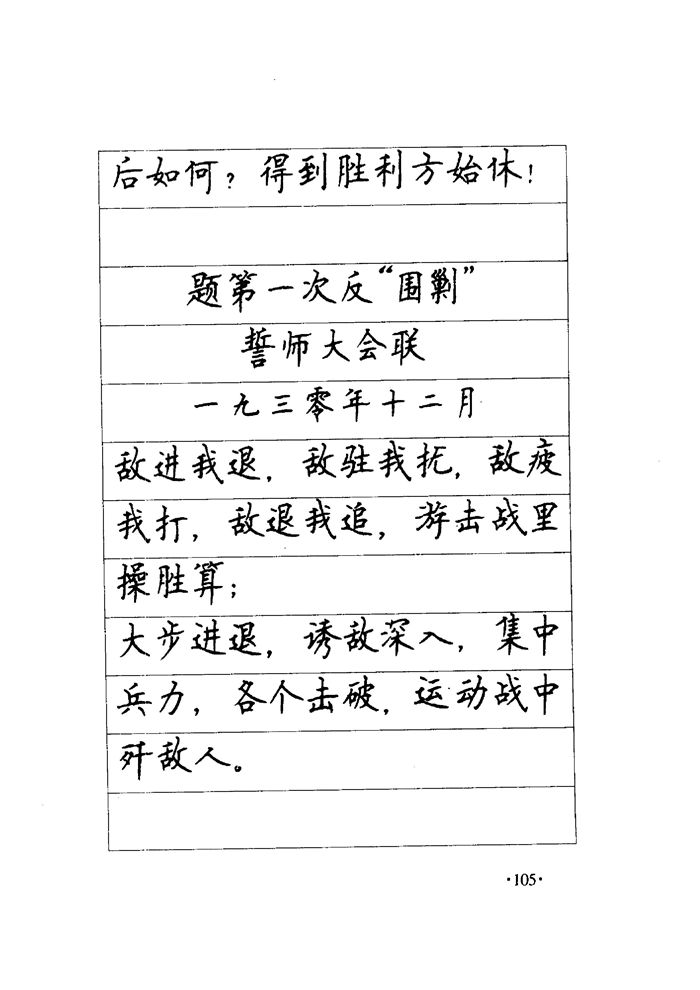 后如何？得到胜利方始休！
题第一次反“围剿”
誓师大会联
一九三零年十二月
敌进我退，敌驻我扰，敌疲
我打，敌退我追，游击战里
操胜算；
大步进退，诱敌深入，集中
兵力，各个击破，运动战中
歼敌人。
·105·